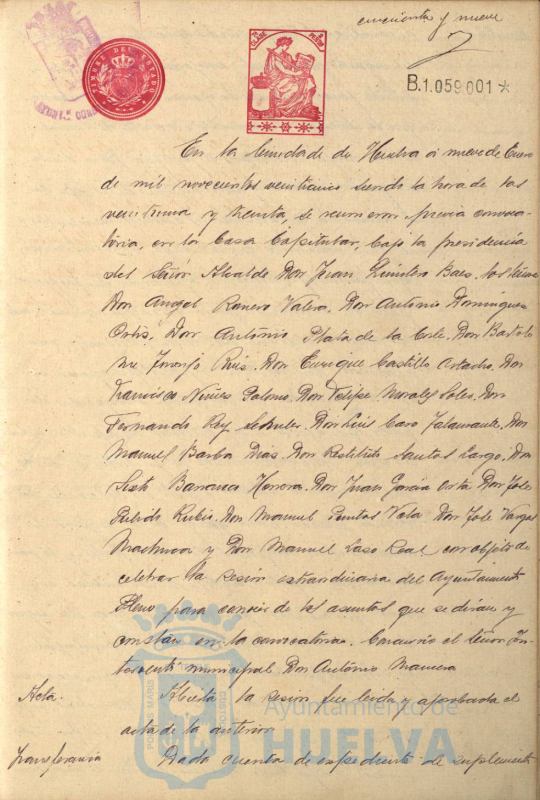 cincuenta y nueve
TIMBRE DEL ESTADO
B.1.059.001 *
En la Ciudad de Huelva a nueve de Enero
de mil novecientos veinticinco siendo la hora de las
veintiuna y treinta, se reunieron previa convoca-
toria, en la Casa Capitular, bajo la presidencia
del Señor Alcalde Don Juan Quintero Baez. los Señores
Don Angel Romero Valero. Don Antonio Dominguez
Ortiz, Don Antonio Plata de la Corte. Don Bartolo
me Naranjo Ruiz. Don Enrique Castillo Don
Francisco Nuñez Palomo. Don Felipe Morales Soles. Don
Fernando Rey Don Luis Caro Don
Manuel Barba Dias. Don Restituto Santos Largo. Don
Sixto Barranca Don Juan Garcia Orta Don José
Pulido Rubio. Don Manuel Vela Don José Vargas
Machuca y Don Manuel Laso Real, con objeto de
celebrar la sesión extraordinaria del Ayuntamiento
Pleno para conocer de los asuntos que se dirán y
constan en la convocatoria. Concurrió el Señor In-
terventor municipal Don Antonio
Acta. Abierta la sesión fue leida y aprobada el
acta de la anterior
Transferencia Dada cuenta de expediente de suplemento
Ayuntamiento de
HUELVA